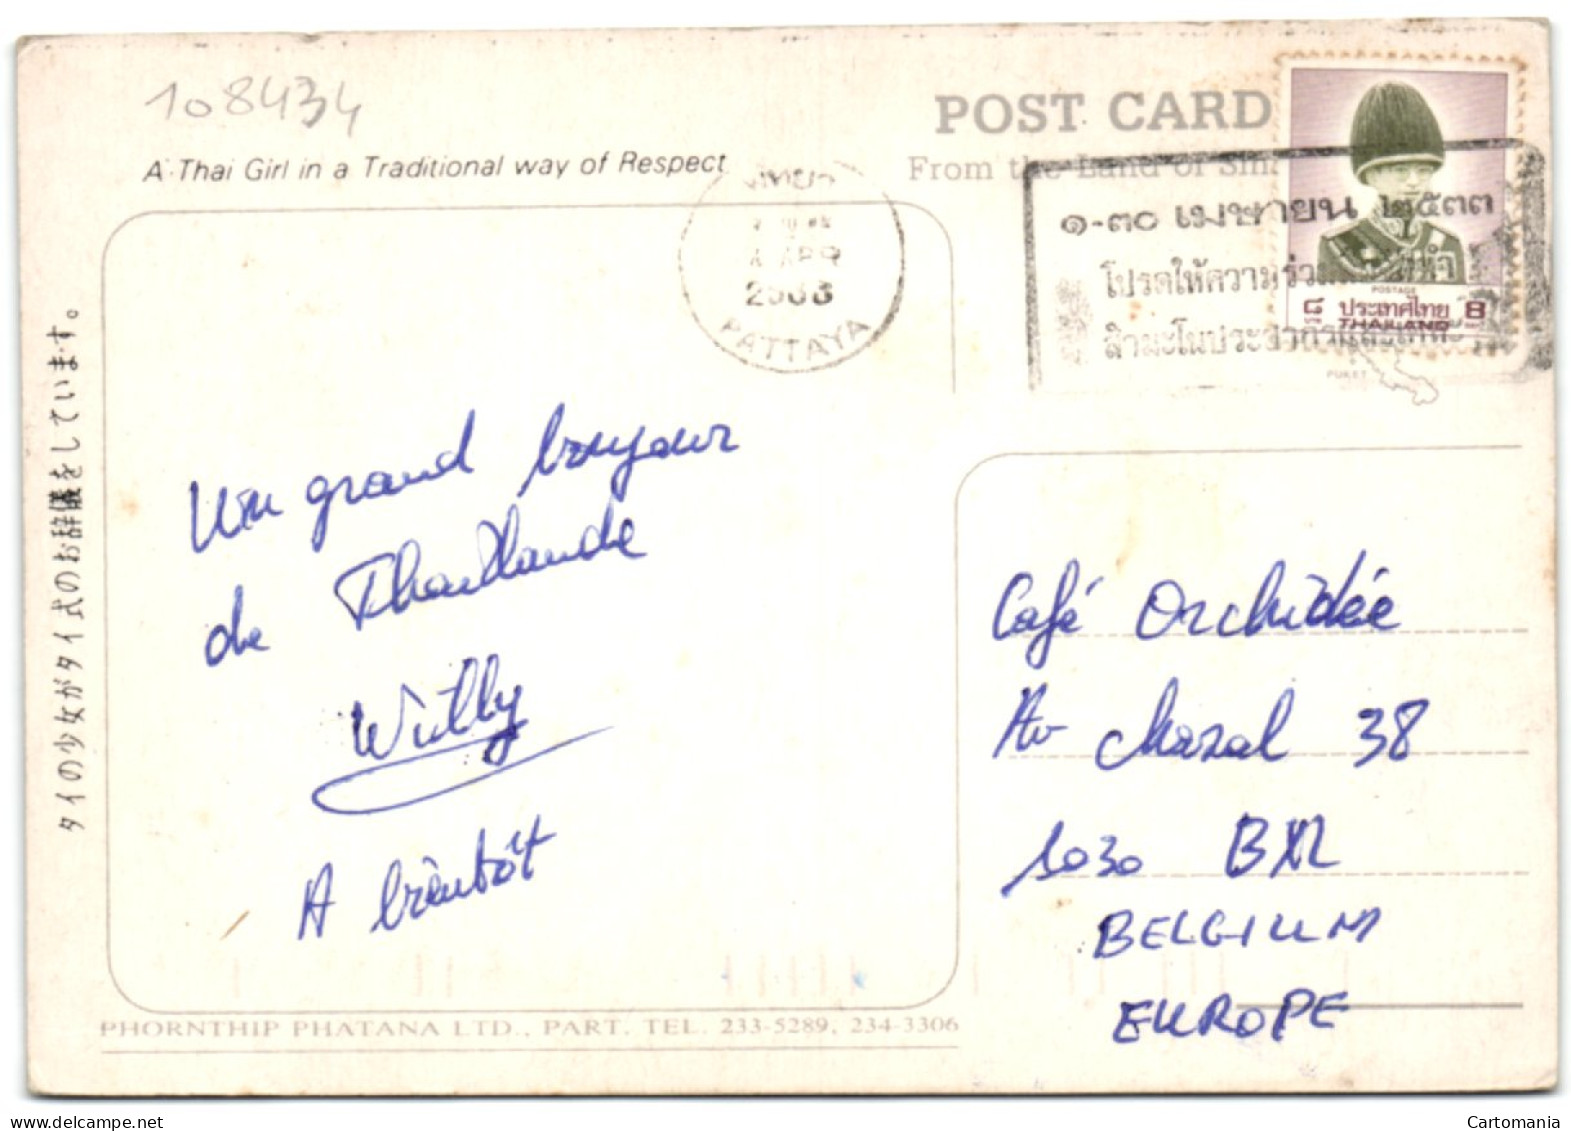 108434
A Thai Girl in a Traditional way of Respect
POST CARD
From the Land of
พัทยา
4 APR
2533
PATTAYA
๑-๓๐ เมษายน ๒๕๓๓
โปรดให้ความร่วมมือ
สำมะโนประชากรและเคหะ
POSTAGE
๘ ประเทศไทย 8
THAILAND
PUKET
タイの少女がタイ式のお辞儀をしています。
Un grand bonjour
de Thaïlande
Willy
A bientôt
Café Orchidée
Av Chazal 38
1030 BXL
BELGIUM
EUROPE
PHORNTHIP PHATANA LTD., PART. TEL. 233-5289, 234-3306
Cartomania